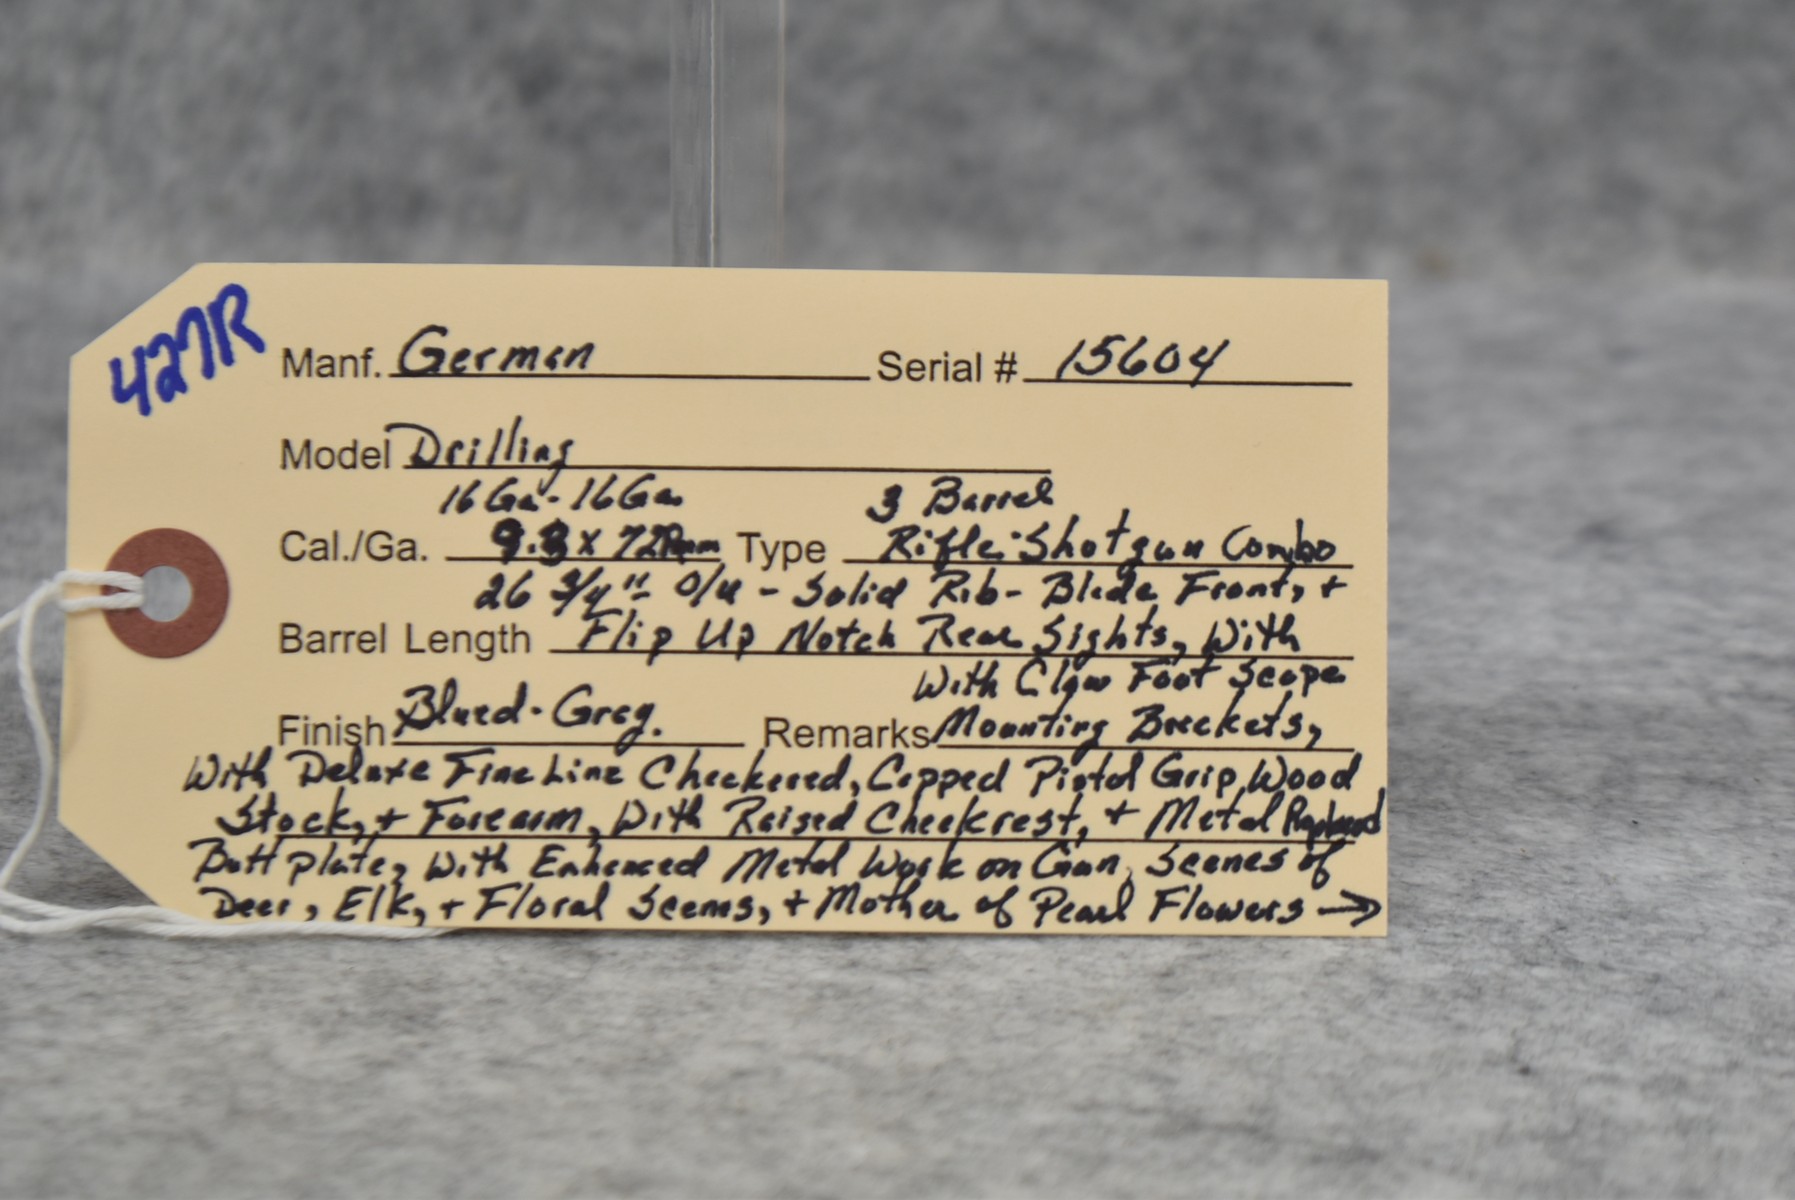 427R
Manf. German Serial # 15604
Model Drilling
16 Ga - 16 Ga 3 Barrel
Cal./Ga. 9.3 x 72Rmm Type Rifle-Shotgun Combo
26 3/4" - O/U - Solid Rib - Blade Front, +
Barrel Length Flip Up Notch Rear Sights, With
With Claw Foot Scope
Finish Blued-Grey. Remarks Mounting Brackets,
With Deluxe Fine Line Checkered, Capped Pistol Grip, Wood
Stock, + Forearm, With Raised Cheekrest, + Metal
Butt plate, With Enhanced Metal Work on Gun, Scenes of
Deer, Elk, + Floral Scems, + Mother of Pearl Flowers →